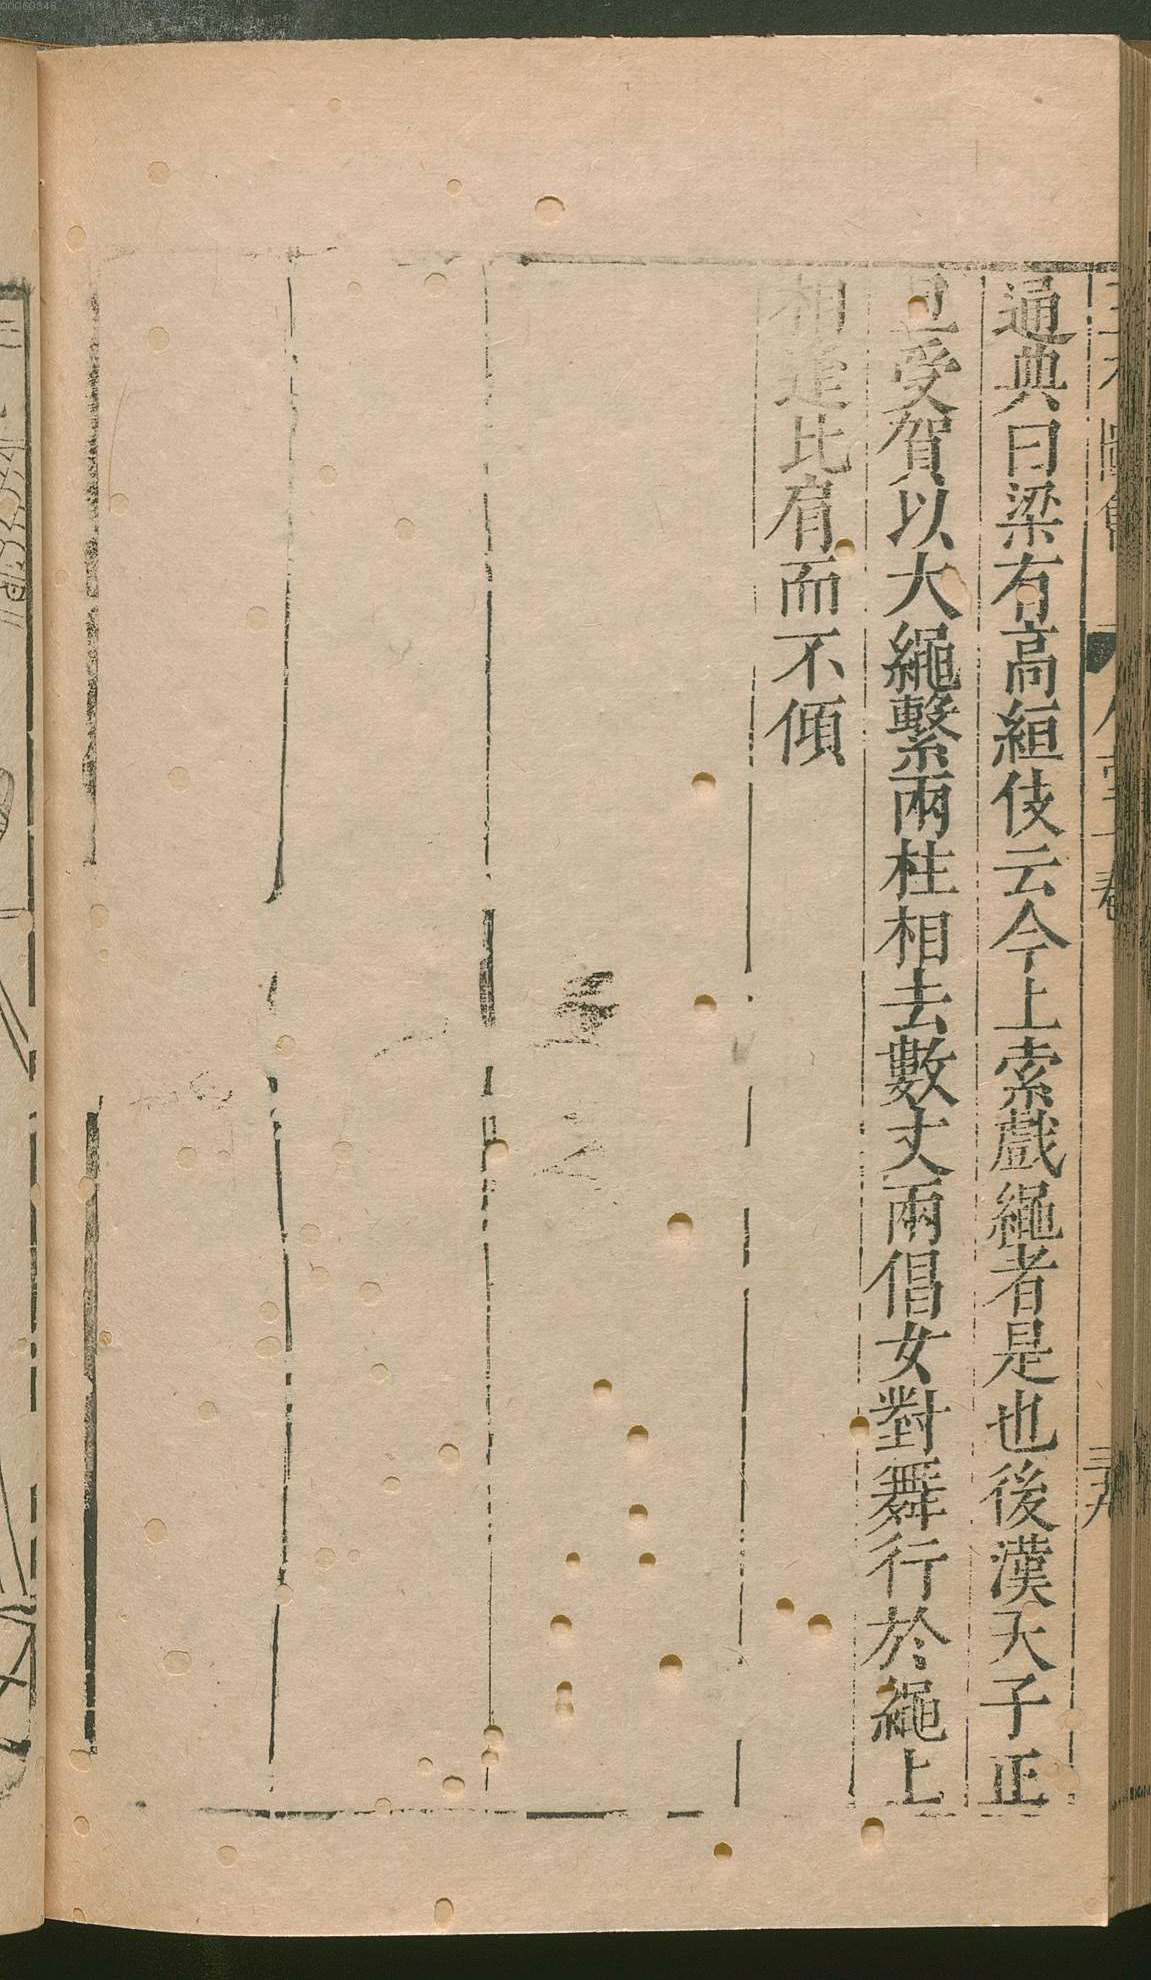 通典曰梁有高絙伎云今上索戲繩者是也後漢天子正
旦受賀以大繩繫兩柱相去數丈兩倡女對舞行於繩上
相逢比肩而不傾
00060348